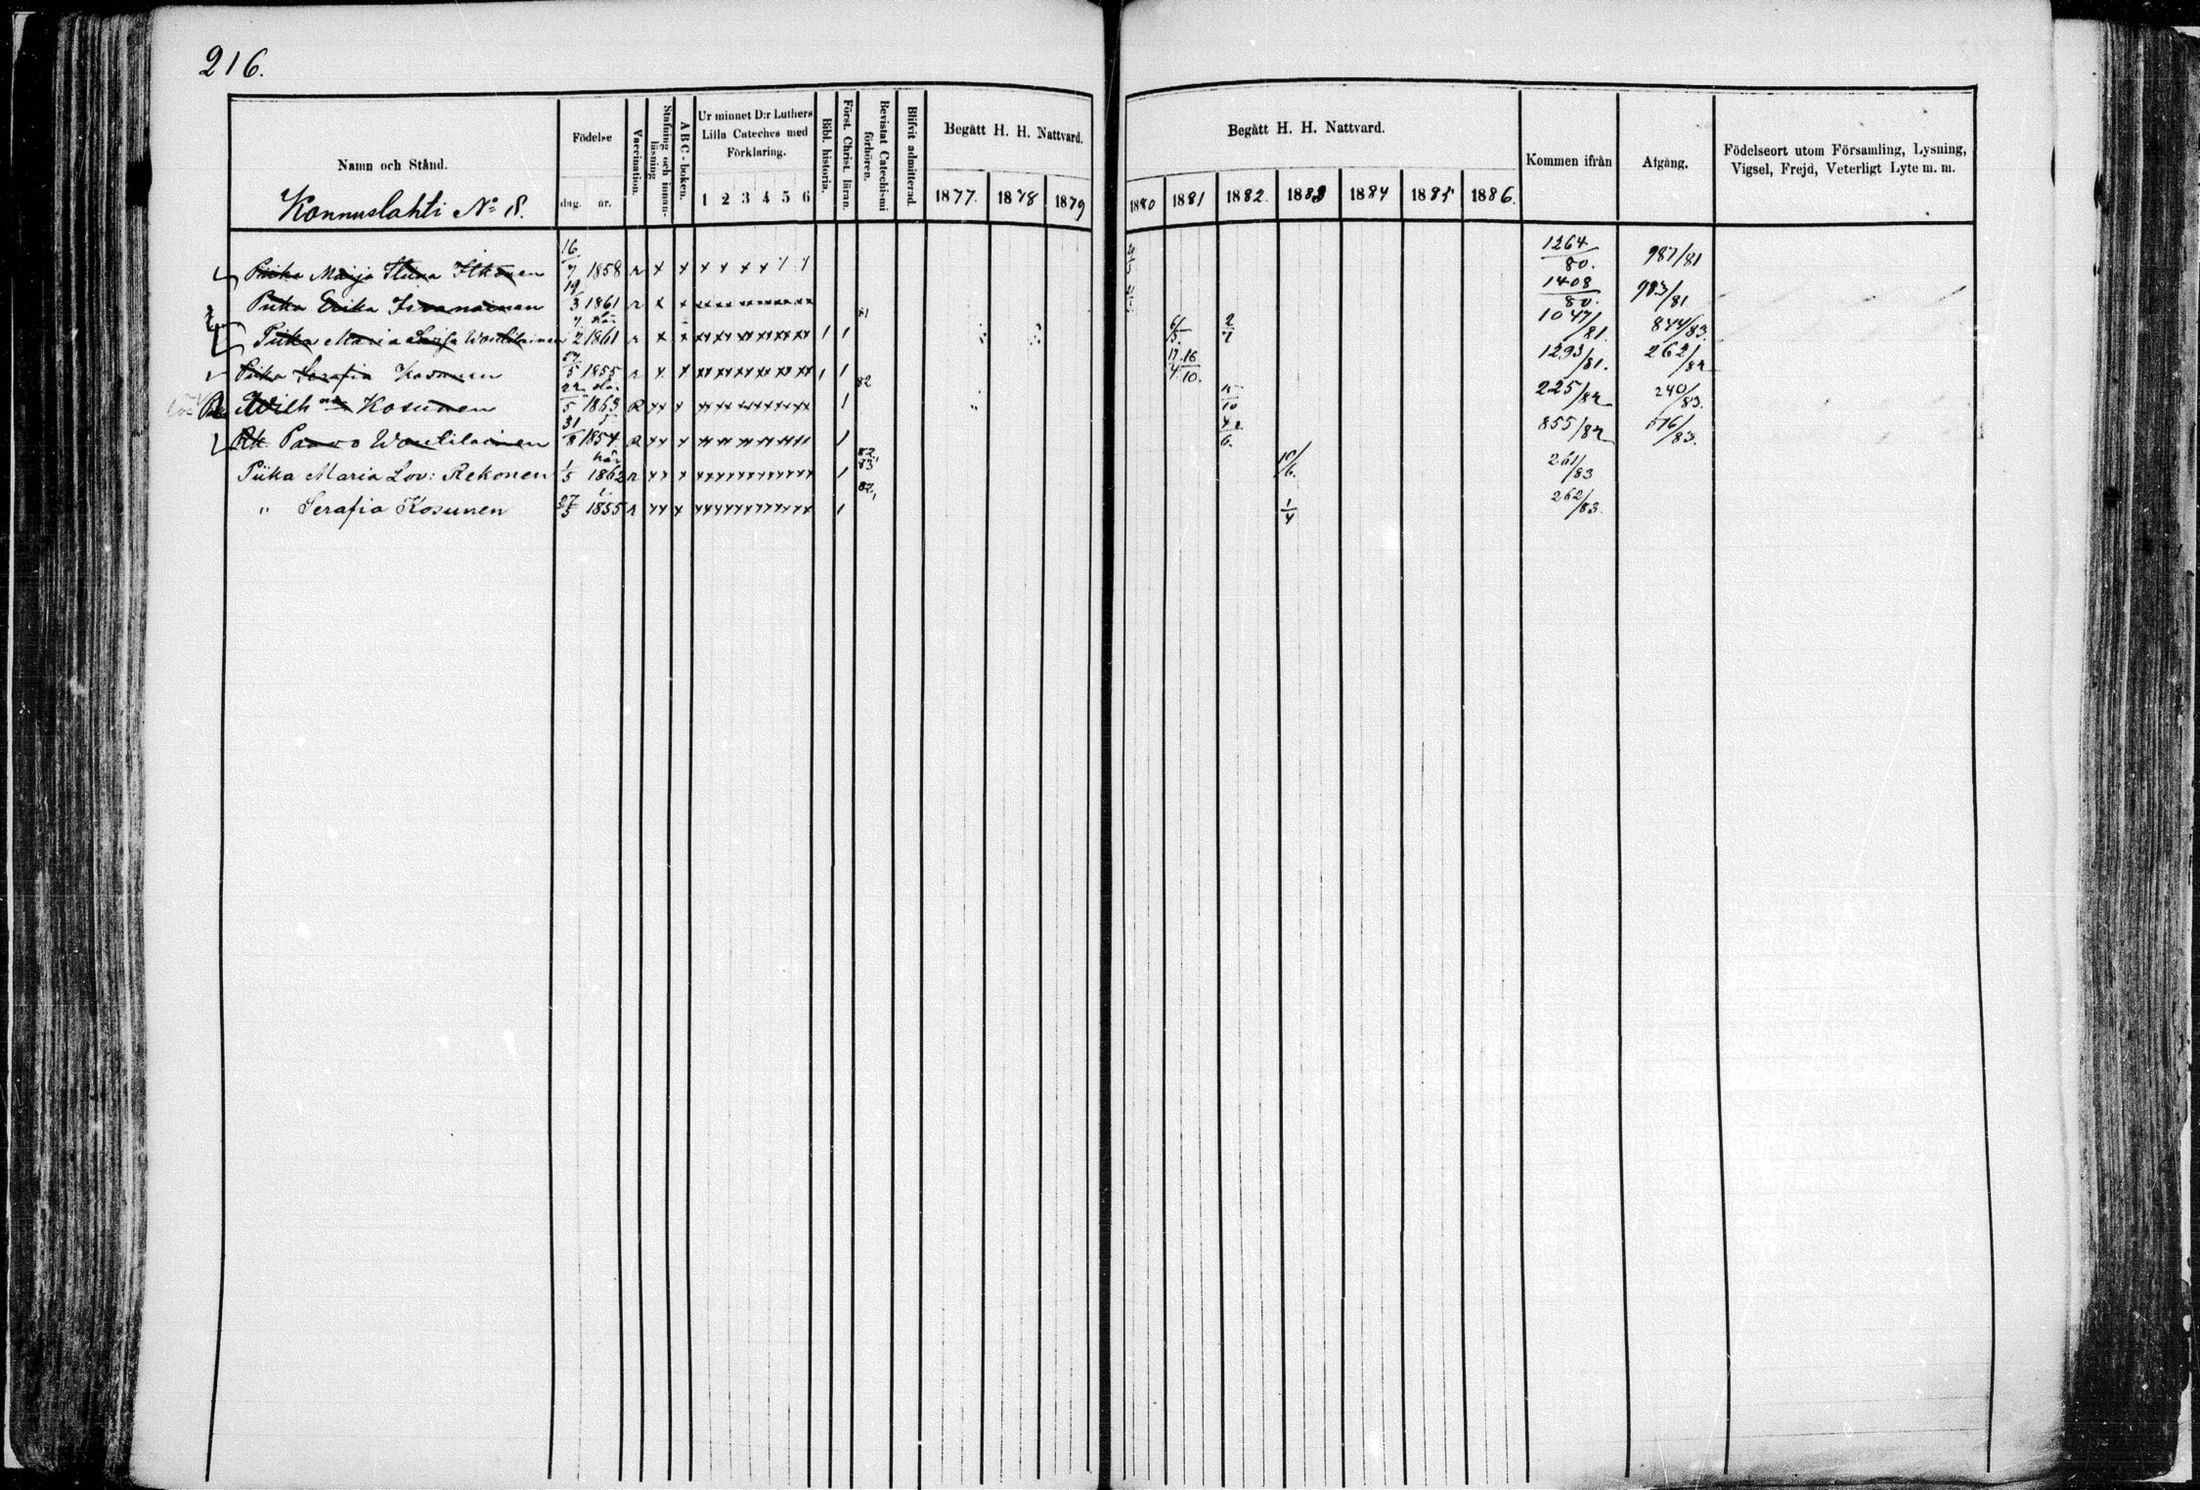 216.
Namn och Stånd.
Konnuslahti No 18.
Födelse
dag. år.
Vaccination.
Stafning och innan-läsning
A B C - boken.
Ur minnet D:r Luthers
Lilla Cateches med
Förklaring.
1 2 3 4 5 6
Bibl. historia.
Först. Christ. läran.
Bevistat Catechismi förhören.
Blifvit admitterad.
Begått H. H. Nattvard.
1877. 1878 1879
Begått H. H. Nattvard.
1880 1881 1882. 1883 1884 1885 1886.
Kommen ifrån
Afgång.
Födelseort utom Församling, Lysning,
Vigsel, Frejd, Veterligt Lyte m. m.
Piika Maija Stiina Itkonen 16/7 1858 r x x x x x x / / 1264/80. 987/81
Piika Erika 19/3 1861 r x x 1408/80. 983/81
Piika Maria Loviisa Woutilainen 7/2 1861 r x x 1 1 81 6/3. 2/7 1047/81. 844/83.
Piika Serafia Kosunen 27/5 1855 r x x 1 1 17 16/4 10. 1293/81. 262/82
Wilhna Kosunen 22/5 1863 R xx x 1 82 /10 225/82 240/83.
Rk Paavo Woutilainen 31/8 1854 R xx x 1 42/6. 855/82 576/83.
Piika Maria Lov: Rekonen 1/5 1862 r xx x 1 82, 83, 10/6. 261/83
" Serafia Kosunen 27/5 1855 r xx x 1 82, 1/4 262/83.